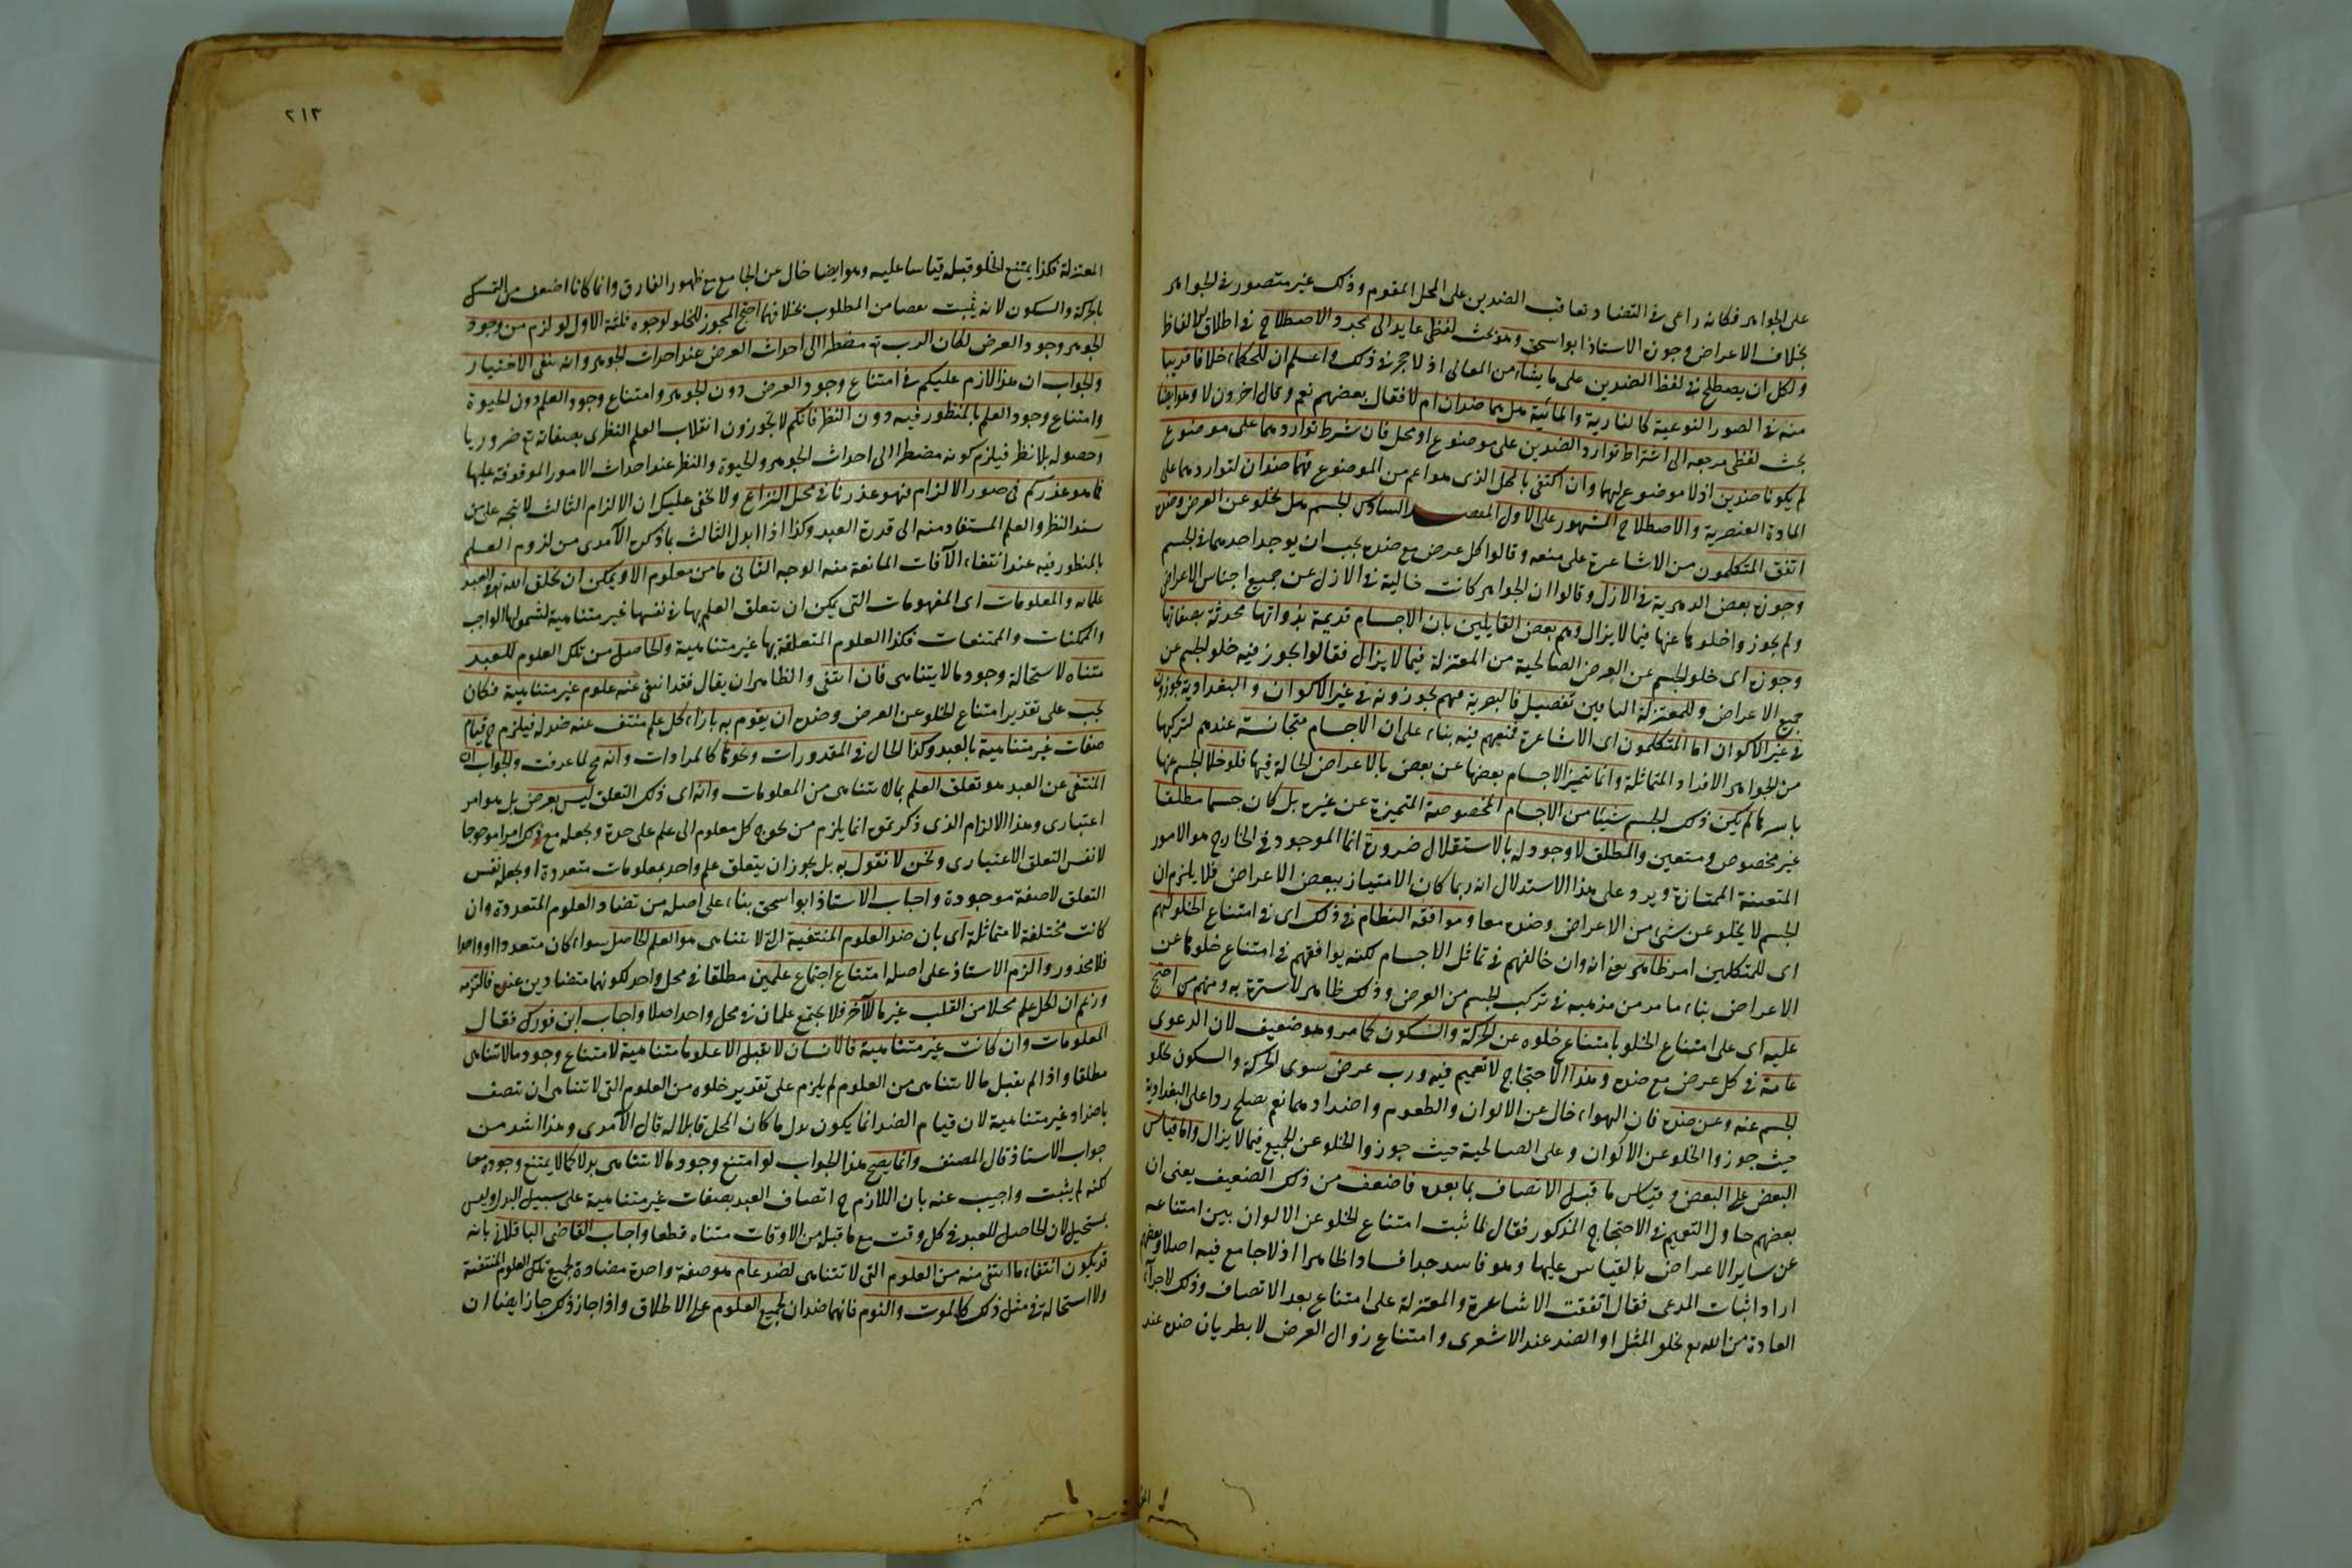 على الجواهر فكانه راعى فى التضاد تعاقب الضدين على المحل المقوم وذلك غير متصور فى الجواهر
بخلاف الاعراض وجوزه الاستاذ ابو اسحق وهو بحث لفظى عايد الى مجرد الاصطلاح فى اطلاق الالفاظ
ولكل ان يصطلح فى لفظ الضدين على ما يشاء من المعانى اذ لا حجر فى ذلك واعلم ان للحكماء خلافا قريبا
منه فى الصور النوعية كالنارية والمائية هل هما ضدان ام لا فقال بعضهم نعم وقال اخرون لا وهو ايضا
بحث لفظى مرجعه الى اشتراط توارد الضدين على موضوع او محل فان شرط تواردهما على موضوع
لم يكونا ضدين اذ لا موضوع لهما وان اكتفى بالمحل الذى هو اعم من الموضوع فهما ضدان لتواردهما على
المادة العنصرية والاصطلاح المشهور على الاول المقصد السادس الجسم هل يخلو عن العرض وضده
اتفق المتكلمون من الاشاعرة على منعه وقالوا كل عرض مع ضده يجب ان يوجد احدهما فى الجسم
وجوزه بعض الدهرية فى الازل وقالوا ان الجواهر كانت خالية فى الازل عن جميع اجناس الاعراض
ولم يجوزوا خلوها عنها فيما لا يزال وهم بعض القايلين بان الاجسام قديمة بذواتها محدثة بصفاتها
وجوزه اى خلو الجسم عن العرض الصالحية من المعتزلة فيما لا يزال فقالوا يجوز فيه خلو الجسم عن
جميع الاعراض وللمعتزلة الباقين تفصيل فالبصرية منهم يجوزونه فى غير الاكوان والبغدادية يجوزونه
فى غير الالوان اما المتكلمون اى الاشاعرة فمنعهم فيه بناء على ان الاجسام متجانسة عندهم لتركبها
من الجواهر الافراد المتماثلة وانما يتميز الاجسام بعضها عن بعض بالاعراض الحالة فيها فلو خلا الجسم عنها
باسرها لم يكن ذلك الجسم شيئا من الاجسام المخصوصة المتميزة عن غيره بل كان جسما مطلقا
غير مخصوص ومتعين والمطلق لا وجود له بالاستقلال ضرورة انما الموجود فى الخارج هو الامور
المتعينة الممتازة ويرد على هذا الاستدلال انه ربما كان الامتياز ببعض الاعراض فلا يلزم ان
الجسم لا يخلو عن شىء من الاعراض وضده معا وموافقه النظام فى ذلك اى فى امتناع الخلو لهم
اى للمتكلمين امر ظاهر يعنى انه وان خالفهم فى تماثل الاجسام لكنه يوافقهم فى امتناع خلوها عن
الاعراض بناء ما مر من مذهبه فى تركب الجسم من العرض وذلك ظاهر لا سترة به ومنهم من احتج
عليه اى على امتناع الخلو بامتناع خلوه عن الحركة والسكون كما مر وهو ضعيف لان الدعوى
عامة فى كل عرض مع ضده وهذا الاحتجاج لا تعميم فيه ورب عرض سوى الحركة والسكون يخلو
الجسم عنه وعن ضده فان الهواء خال عن الالوان والطعوم واضدادهما نعم يصلح ردا على البغدادية
حيث جوزوا الخلو عن الاكوان وعلى الصالحية حيث جوزوا الخلو عن الجميع فيما لا يزال واما قياس
البعض على البعض وقياس ما قبل الاتصاف بما بعده فاضعف من ذلك الضعيف يعنى ان
بعضهم حاول التعميم فى الاحتجاج المذكور فقال لما ثبت امتناع الخلو عن الالوان بين امتناعه
عن ساير الاعراض بالقياس عليها وهو فاسد جدا فسادا ظاهرا اذ لا جامع فيه اصلا وبعضهم
اراد اثبات المدعى فقال اتفقت الاشاعرة والمعتزلة على امتناع بعد الاتصاف وذلك لاجراء
العادة من الله تع بخلق المثل او الضد عند الاشعرى وامتناع زوال العرض لا بطريان ضده عند
٢١٣
المعتزلة فكذا يمتنع الخلو قبله قياسا عليه وهو ايضا خال عن الجامع مع ظهور الفارق وانما كانا اضعف من التمسك
بالحركة والسكون لانه يثبت بعضا من المطلوب بخلافهما احتج المجوز للخلو لوجوه ثلثة الاول لو لزم من وجود
الجوهر وجود العرض لكان الرب تع مضطرا الى احداث العرض عند احداث الجوهر وانه ينفى الاختيار
والجواب ان هذا لازم عليكم فى امتناع وجود العرض دون الجوهر وامتناع وجود العلم دون الحيوة
وامتناع وجود العلم بالمنظور فيه دون النظر فانكم لا تجوزون انقلاب العلم النظرى بصفاته تع ضروريا
وحصوله بلا نظر فيلزم كونه مضطرا الى احداث الجوهر والحيوة والنظر عند احداث الامور الموقوفة عليها
فما هو عذركم فى صور الالزام فهو عذرنا فى محل النزاع ولا يخفى عليك ان الالزام الثالث لا يتجه على من
يسند النظر والعلم المستفاد منه الى قدرة العبد وكذا اذا ابدل الثالث بما ذكره الآمدى من لزوم العلم
بالمنظور فيه عند انتفاء الآفات المانعة منه الوجه الثانى ما من معلوم الا ويمكن ان يخلق الله تع فى العبد
علما به والمعلومات اى المفهومات التى يمكن ان يتعلق العلم بها فى نفسها غير متناهية لشمولها الواجب
والممكنات والممتنعات فكذا العلوم المتعلقة بها غير متناهية والحاصل من تلك العلوم للعبد
متناه لاستحالة وجود ما لا يتناهى فان انتفى والظاهر ان يقال فقد انتفى عنه علوم غير متناهية فكان
يجب على تقدير امتناع الخلو عن العرض وضده ان يقوم به بازاء كل علم منتف عنه ضد له فيلزم ح قيام
صفات غير متناهية بالعبد وكذا الحال فى المقدورات ونحوها كالمرادات وانه مح لما عرفت والجواب ان
المنتفى عن العبد هو تعلق العلم بما لا يتناهى من المعلومات وانه اى ذلك التعلق ليس بعرض بل هو امر
اعتبارى وهذا الالزام الذى ذكرتموه انما يلزم من يحوج كل معلوم الى علم على حدة ويجعله مع ذلك امرا موجودا
لا نفس التعلق الاعتبارى ونحن لا نقول به بل يجوز ان يتعلق علم واحد بمعلومات متعددة او يجعله نفس
التعلق لا صفة موجودة واجاب الاستاذ ابو اسحق بناء على اصله من تضاد العلوم المتعددة وان
كانت مختلفة لا متماثلة اى بان ضد العلوم المنتفية التى لا تتناهى هو العلم الحاصل سواء كان متعددا او واحدا
فلا محذور والزم الاستاذ على اصله امتناع اجتماع علمين مطلقا فى محل واحد لكونهما متضادين عنده فالتزمه
وزعم ان لكل علم محلا من القلب غير ما للآخر فلا يجتمع علمان فى محل واحد اصلا واجاب ابن فورك فقال
المعلومات وان كانت غير متناهية فالانسان لا يقبل الا علوما متناهية لامتناع وجود ما لا يتناهى
مطلقا واذا لم يقبل ما لا يتناهى من العلوم لم يلزم على تقدير خلوه من العلوم التى لا تتناهى ان يتصف
باضداد غير متناهية لان قيام الضد انما يكون بدل ما كان المحل قابلا له قال الآمدى وهذا اشد من
جواب الاستاذ قال المصنف وانما يصح هذا الجواب لو امتنع وجود ما لا يتناهى بدلا كما لا يمتنع وجوده معا
لكنه لم يثبت واجيب عنه بان اللازم ح اتصاف العبد بصفات غير متناهية على سبيل البدل وليس
بمستحيل لان الحاصل للعبد فى كل وقت مع ما قبله من الاوقات متناه قطعا واجاب القاضى الباقلانى بانه
قد يكون انتفاء ما انتفى منه من العلوم التى لا تتناهى لضد عام هو صفة واحدة مضادة لجميع تلك العلوم المنتفية
ولا استحالة فى مثل ذلك كالموت والنوم فانهما ضدان لجميع العلوم على الاطلاق واذا جاز ذلك جاز ايضا ان